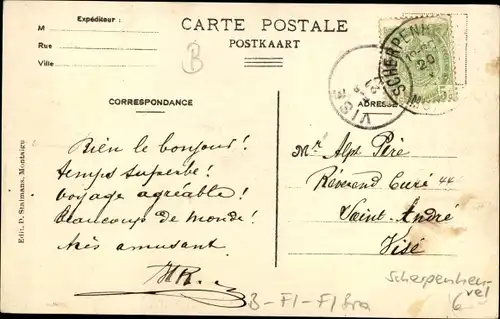 Expéditeur :
M
Rue
Ville
CARTE POSTALE
POSTKAART
B
SCHERPENH
20
5
VISÉ
CORRESPONDANCE
ADRESSE
Rien le bonjour!
temps superbe!
voyage agréable!
beaucoup de monde!
très amusant.
Edit. D. Stalmans, Montaigu
Mr Alph Père
Révérend Curé
Saint André
Visé
Scherpenheu-
vel
6-
B-Fl-Fl Bra